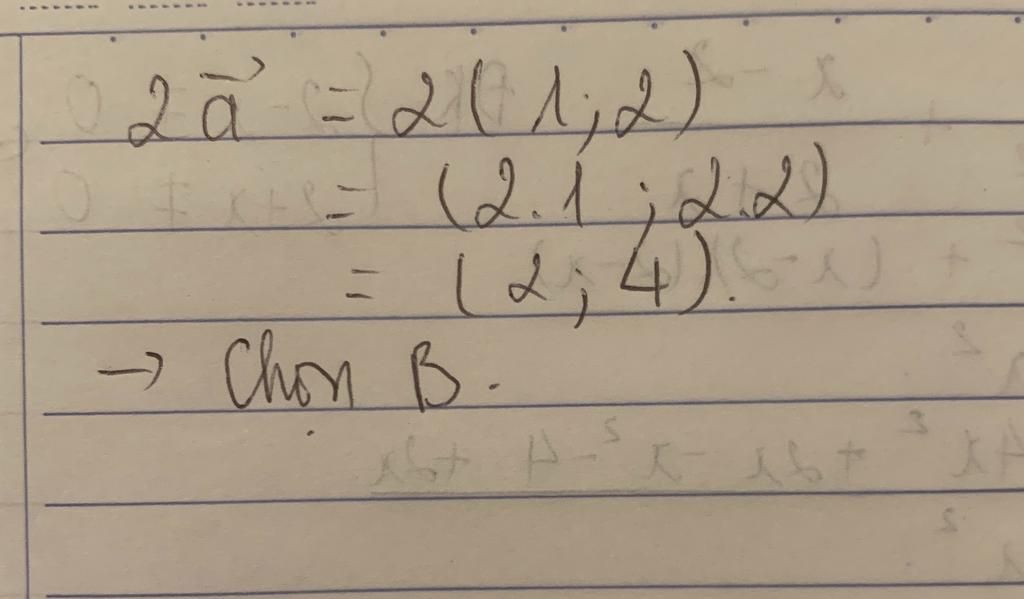 2a⃗ = 2(1;2)
= (2.1 ; 2.2)
= (2; 4).
→ Chọn B.